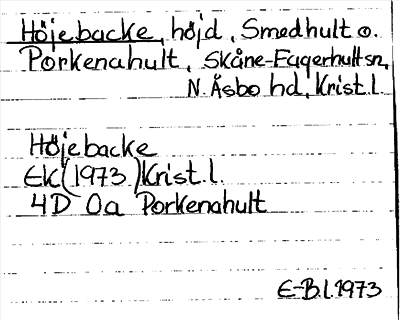 Höjebacke, höjd, Smedhult o.
Porkenahult, Skåne-Fagerhult sn,
N. Åsbo hd, Krist. l.
Höjebacke
EK (1973) Krist. l.
4D 0a Porkenahult
E-B.l. 1973